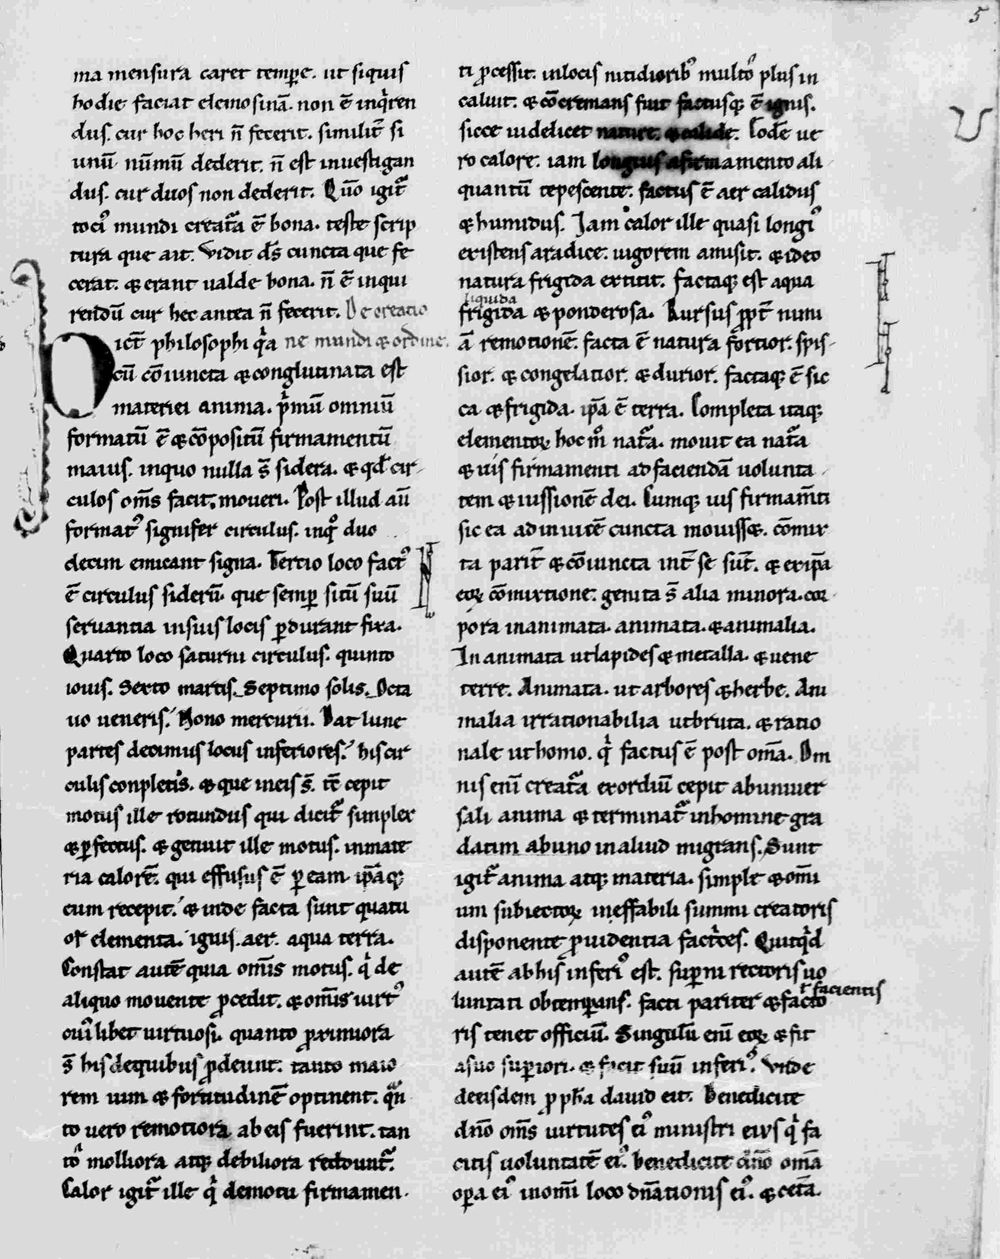 5
ma mensura caret tempe. ut siquis
hodie faciat elemosinā. non ē inq̇ren
dus. cur hoc heri n̄ fecerit. similit̄ si
unū nūmū dederit. n̄ est inuestigan
dus. cur duos non dederit. Quō igit̄
toci᾿ mundi creat̄a ē bona. teste scrip
tura que ait. Vidit d̄s cuncta que fe
cerat. & erant ualde bona. n̄ ē inqui
rendū cur hec antea n̄ fecerit. De creatio
Dict̄ philosophi q̇a ne mundi & ordine.
cū cōiuncta & conglutinata est
materiei anima. ṗmū omniū
formatū ē & cōpositū firmamentū
maius. inquo nulla s̄ sidera. & qd̄ cir
culos om̄s facit moueri. Post illud aū
format᾿ signifer circulus. inq̇ duo
decim emicant signa. Tertio loco fact᾿
ē circulus siderū. que semp̱ sitū suū
seruantia insuis locis p̱durant fixa.
Quarto loco saturni circulus. quinto
iouis. Sexto martis. Septimo solis. Octa
uo ueneris. Nono mercurii. Dat lune
partes decimus locus inferiores. his cir
culis conpletis. & que ineis s̄. tē cepit
motus ille rotundus qui dicit̄ simplex
& p̱fectus. & genuit ille motus. inmate
ria calorē. qui effusus ē p̱ eam. ip̄aq;
eum recepit. & inde facta sunt quatu
or elementa. ignis. aer. aqua terra.
Constat autē quia om̄is motus. q̇ de
aliquo mouente p̱cedit. & om̄is uirt᾿
cui᾿libet uirtuosi. quanto p̱ximiora
s̄ his dequibus p̱deunt. tanto maio
rem uim & fortitudinē optinent. q̄n
to uero remotiora ab eis fuerint. tan
tō molliora atq; debiliora reddunt̄.
Calor igit̄ ille q̇ demotu firmamen
ti p̱cessit. inlocis nitidiorib᾿ multō plus in
caluit. & cōcremans fuit factusq; ē ignis.
sicce uidelicet nature. & calide. Eodē ue
ro calore. iam longius afirmamento ali
quantū tepescente. factus ē aer calidus
& humidus. Iam calor ille quasi longi᾿
existens aradice. uigorem amisit. & ideo
natura frigida extitit. factaq; est aqua
liquida
frigida & ponderosa. Rursus pp̄t nimi
ā remotionē. facta ē natura fortior. spis
sior. & congelatior. & durior. factaq; ē sic
ca & frigida. ip̄a ē terra. Completa itaq;
elementoꝝ hoc m̊ nat̄a. mouit ea nat̄a
& uis firmamenti ad faciendā uolunta
tem & iussionē dei. Cumq; uis firmam̄ti
sic ea adinuicē cuncta mouiss&. cōmix
ta parit̄ & cōiuncta int̄ se sūt. & exip̄a
eoꝝ cōmixtione. genita s̄ alia minora. cor
pora inanimata. animata. & animalia.
Inanimata ut lapides & metalla. & uene
terre. Animata. ut arbores & herbe. Ani
malia irrationabilia ut bruta. & ratio
nale ut homo. q̇ factus ē post om̄a. Om
nis eni creat̄a exordiū cepit ab uniuer
sali anima & terminat̄ inhomine gra
datim ab uno inaliud migrans. Sunt
igit̄ anima atq; materia. simplex & omni
um subiectoꝝ ineffabili summi creatoris
disponente p̱uidentia factrices. Quicq̇d
autē ab his inferi᾿ est. superni rectoris uo
luntati obtemp̱ans. facti pariter & facto
r̄ facientis
ris tenet officiū. Singulū eni eoꝝ & fit
asuo sup̱iori. & facit suū inferi᾿. Vnde
deeisdem p̱ph̄a dauid eit. Benedicite
dn̄o om̄s uirtutes ei᾿ ministri eius q̇ fa
citis uoluntatē ei᾿. benedicite dn̄o om̄a
op̱a ei᾿ inomi loco dn̄ationis ei᾿. & ceta.